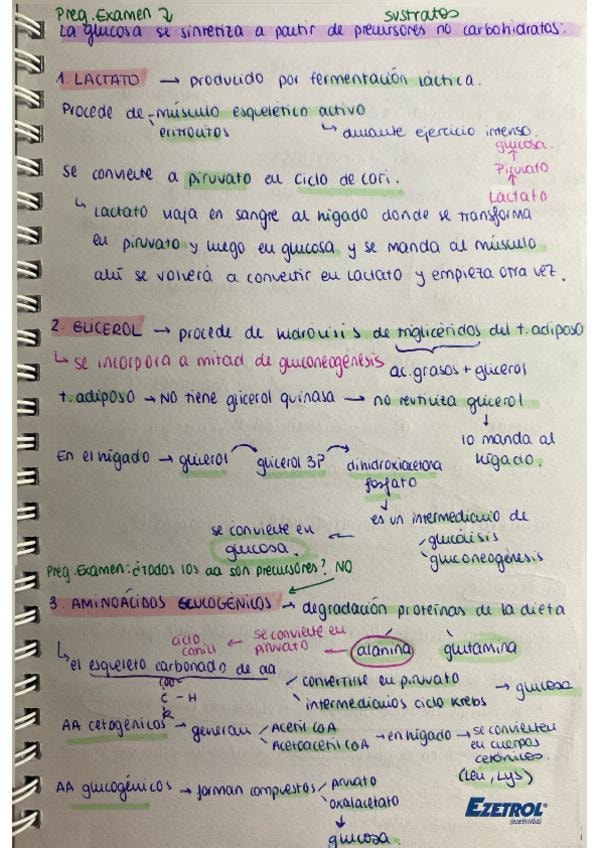 Preg. Examen ↓ sustratos
La glucosa se sintetiza a partir de precursores no carbohidratos:
1. LACTATO → producido por fermentación láctica.
Procede de - músculo esquelético activo
eritrocitos ↳ durante ejercicio intenso.
glucosa.
↑
Piruvato
↑
Lactato
Se convierte a piruvato en ciclo de cori.
↳ Lactato viaja en sangre al hígado donde se transforma
en piruvato y luego en glucosa y se manda al músculo
ahí se volverá a convertir en lactato y empieza otra vez.
2. GLICEROL → procede de hidrólisis de triglicéridos del t. adiposo
↳ se incorpora a mitad de gluconeogénesis ac. grasos + glicerol
t. adiposo → NO tiene glicerol quinasa → no reutiliza glicerol
↓
lo manda al
hígado.
En el hígado → glicerol → glicerol 3P → dihidroxiacetona
fosfato
↓
es un intermediario de
glucólisis
gluconeogénesis
se convierte en ←
glucosa.
Preg. Examen: ¿todos los aa son precursores? NO
3. AMINOÁCIDOS GLUCOGÉNICOS → degradación proteínas de la dieta
alanina glutamina
ciclo cahill ← se convierte en piruvato ←
↳ el esqueleto carbonado de aa
COO⁻
C - H
R
convertirse en piruvato
intermediarios ciclo Krebs → glucosa
AA cetogénicos → generan Acetil CoA
Acetoacetil CoA → en hígado → se convierten
en cuerpos
cetónicos.
(Leu, Lys)
AA glucogénicos → forman compuestos piruvato
oxalacetato
↓
glucosa.
EZETROL®
(ezetimiba)